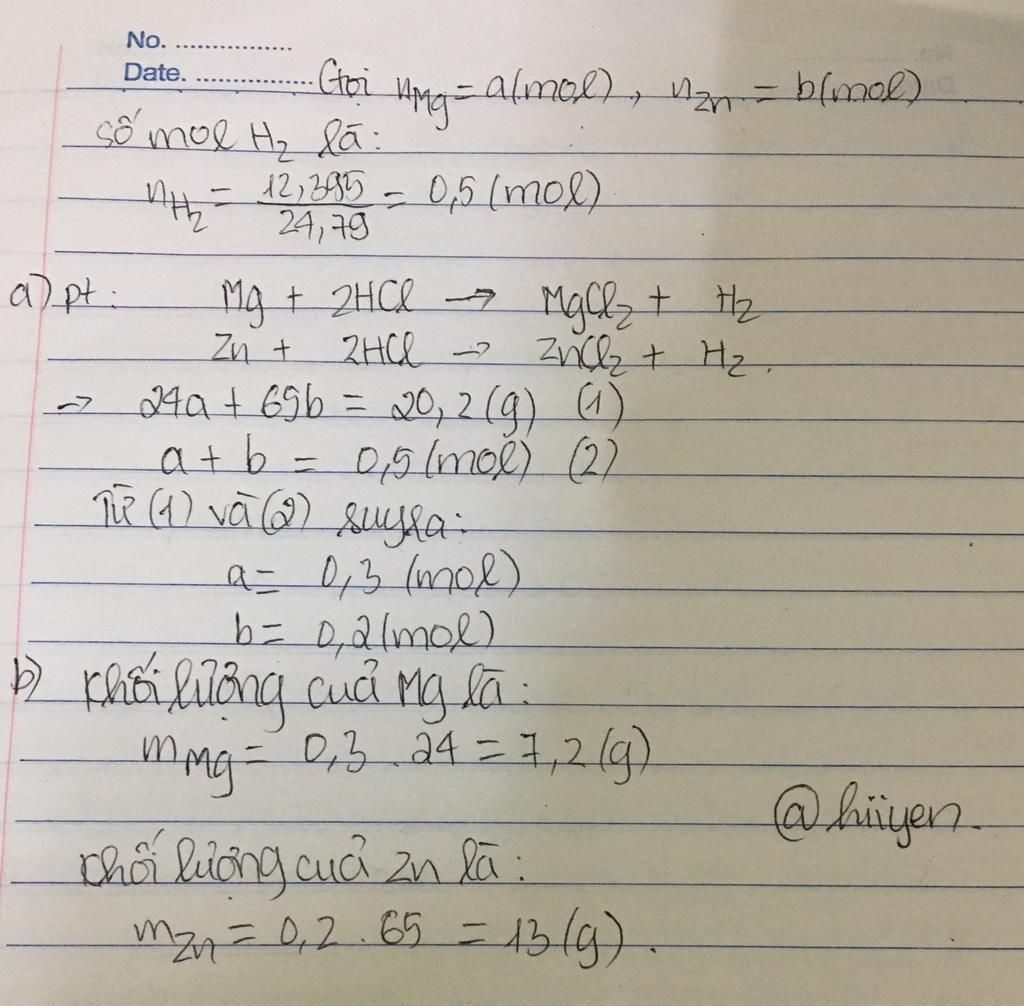 No. ................
Date. ................ Gọi nMg = a(mol), nZn = b(mol)
số mol H2 là:
nH2 = 12,395/24,79 = 0,5 (mol)
a) pt: Mg + 2HCl → MgCl2 + H2
Zn + 2HCl → ZnCl2 + H2.
→ 24a + 65b = 20,2(g) (1)
a + b = 0,5(mol) (2)
Từ (1) và (2) suy ra:
a = 0,3 (mol)
b = 0,2(mol)
b) Khối lượng của Mg là:
mMg = 0,3 . 24 = 7,2(g)
@hiiyen.
Khối lượng của Zn là:
mZn = 0,2 . 65 = 13(g).